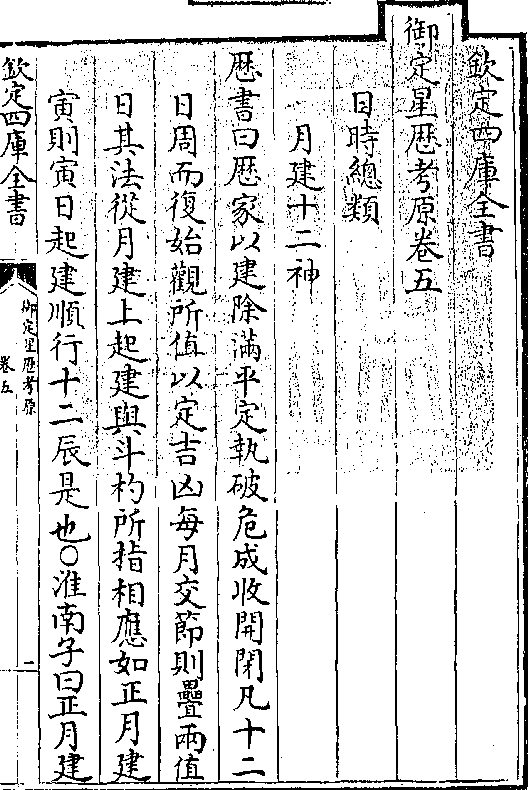 欽定四庫全書
御定星歷考原卷五
日時總類
月建十二神
歷書曰歷家以建除滿平定執破危成收開閉凡十二
日周而復始觀所值以定吉凶每月交節則疊兩值
日其法從月建上起建與斗杓所指相應如正月建
寅則寅日起建順行十二辰是也○淮南子曰正月建
欽定四庫全書
御定星歷考原
卷五
一